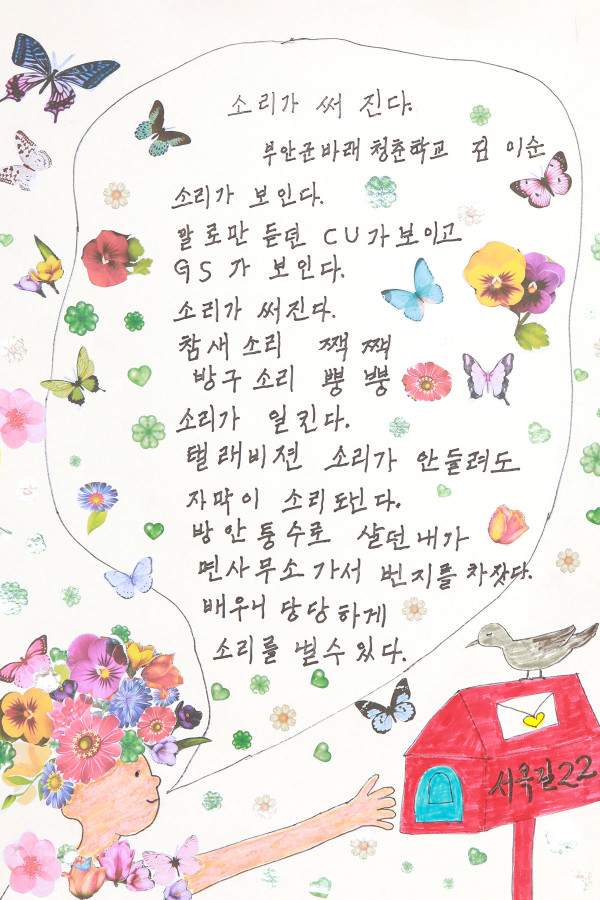 소리가 써 진다.
부안군바래 청춘학교 김 이순
소리가 보인다.
말로만 듣던 CU가 보이고
GS가 보인다.
소리가 써진다.
참새 소리 짹 짹
방구 소리 뿡 뿡
소리가 일킨다.
텔래비젼 소리가 안들려도
자막이 소리되넌다.
방안퉁수로 살던 내가
면사무소 가서 번지를 차잤다.
배우니 당당하게
소리를 낼수 있다.
서옥길 22